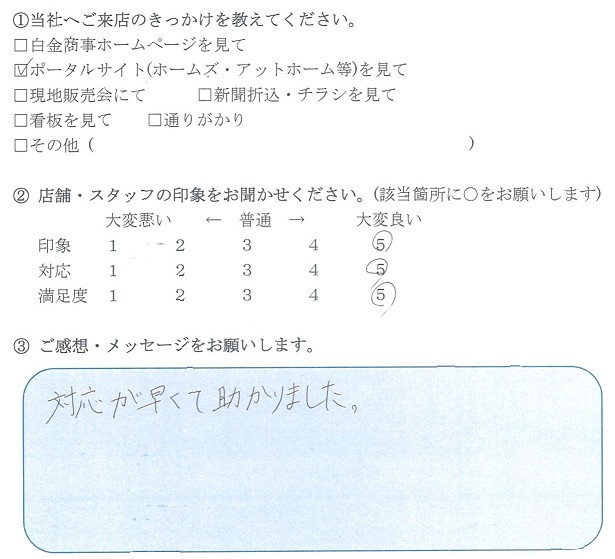 ①当社へご来店のきっかけを教えてください。
□白金商事ホームページを見て
☑ポータルサイト(ホームズ・アットホーム等)を見て
□現地販売会にて　□新聞折込・チラシを見て
□看板を見て　□通りがかり
□その他（　　　）
② 店舗・スタッフの印象をお聞かせください。(該当箇所に○をお願いします)
大変悪い　←　普通　→　大変良い
印象　1　2　3　4　5
対応　1　2　3　4　5
満足度　1　2　3　4　5
③ ご感想・メッセージをお願いします。
対応が早くて助かりました。